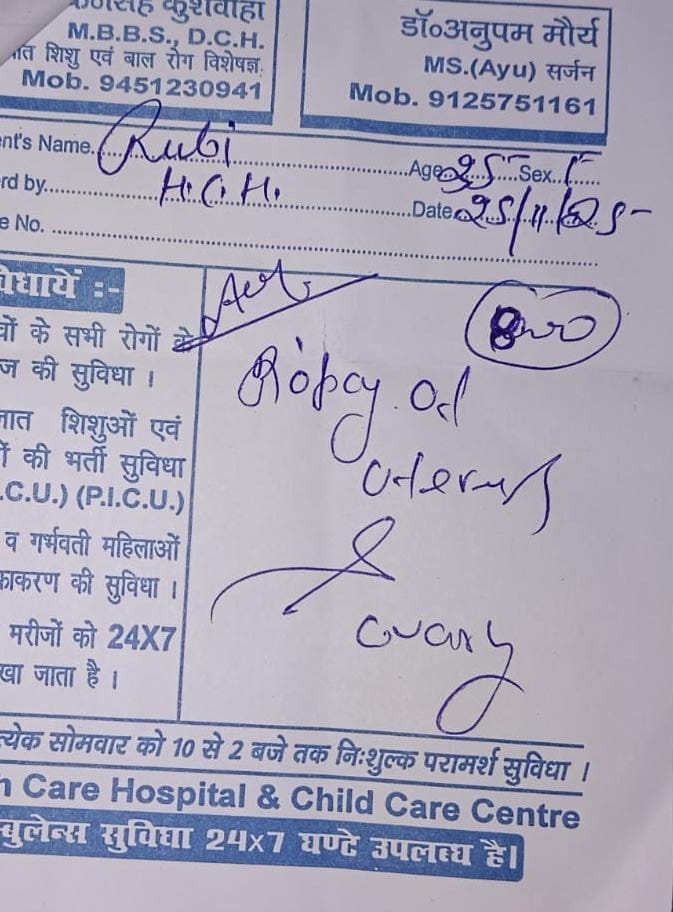 कुशवाहा
M.B.B.S., D.C.H.
शिशु एवं बाल रोग विशेषज्ञ
Mob. 9451230941
डॉ०अनुपम मौर्य
MS.(Ayu) सर्जन
Mob. 9125751161
ent's Name. Rubi Age 25 Sex. F
rd by. H.C.H. Date 25/11/25
e No.
विधायें :-
ों के सभी रोगों के
ज की सुविधा ।
जात शिशुओं एवं
ं की भर्ती सुविधा
.C.U.) (P.I.C.U.)
व गर्भवती महिलाओं
काकरण की सुविधा ।
मरीजों को 24X7
खा जाता है ।
Biopsy of
uterus
&
ovary
त्येक सोमवार को 10 से 2 बजे तक निःशुल्क परामर्श सुविधा ।
h Care Hospital & Child Care Centre
म्बुलेन्स सुविधा 24x7 घण्टे उपलब्ध है।